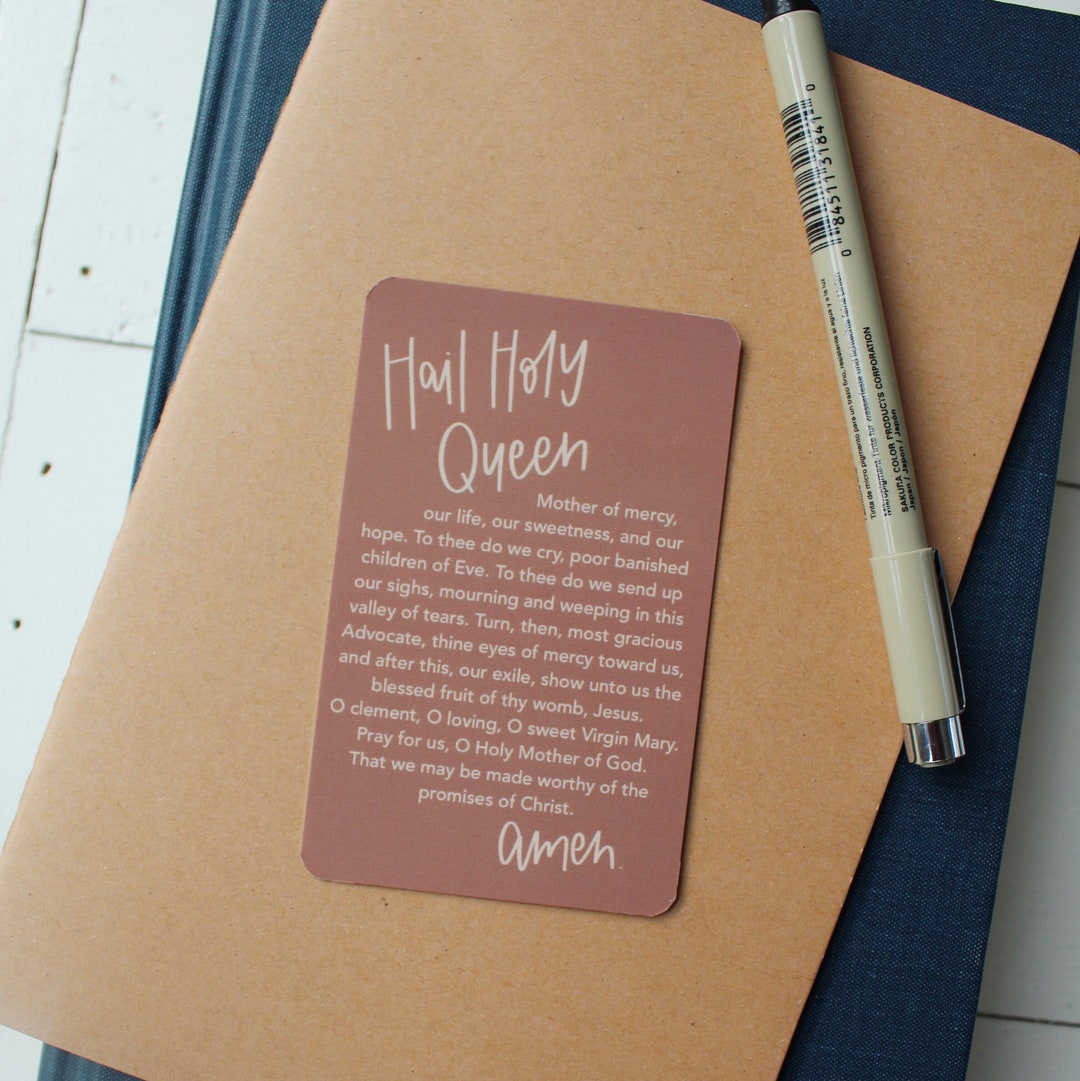 Hail Holy
Queen
Mother of mercy,
our life, our sweetness, and our
hope. To thee do we cry, poor banished
children of Eve. To thee do we send up
our sighs, mourning and weeping in this
valley of tears. Turn, then, most gracious
Advocate, thine eyes of mercy toward us,
and after this, our exile, show unto us the
blessed fruit of thy womb, Jesus.
O clement, O loving, O sweet Virgin Mary.
Pray for us, O Holy Mother of God.
That we may be made worthy of the
promises of Christ.
amen.
0 84511 31841 0
Tinta de micro pigmento para un trazo fino, resistente al agua y a la luz
SAKURA COLOR PRODUCTS CORPORATION
Japan / Japon / Japón